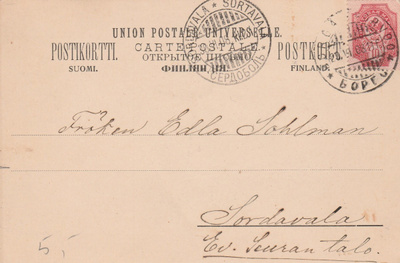 SORDAVALA * SORTAVALA
СЕРДОБОЛЬ
UNION POSTALE UNIVERSELLE.
CARTE POSTALE
POSTIKORTTI. ОТКРЫТОЕ POSTKORT
SUOMI. FINLAND.
БОРГО
Fröken Edla Sohlman
Sordavala
Ev. Seuran talo.
5,-